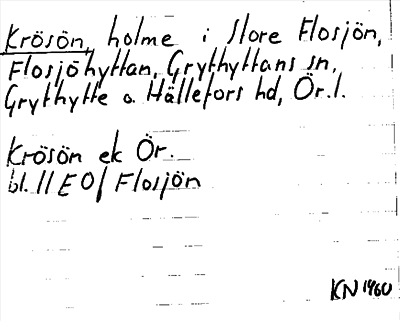 Krösön, holme i Store Flosjön,
Flosjöhyttan, Grythyttans sn,
Grythytte o. Hällefors hd, Ör. l.
Krösön ek Ör.
bl. 11 E 0 f Flosjön
KN 1960